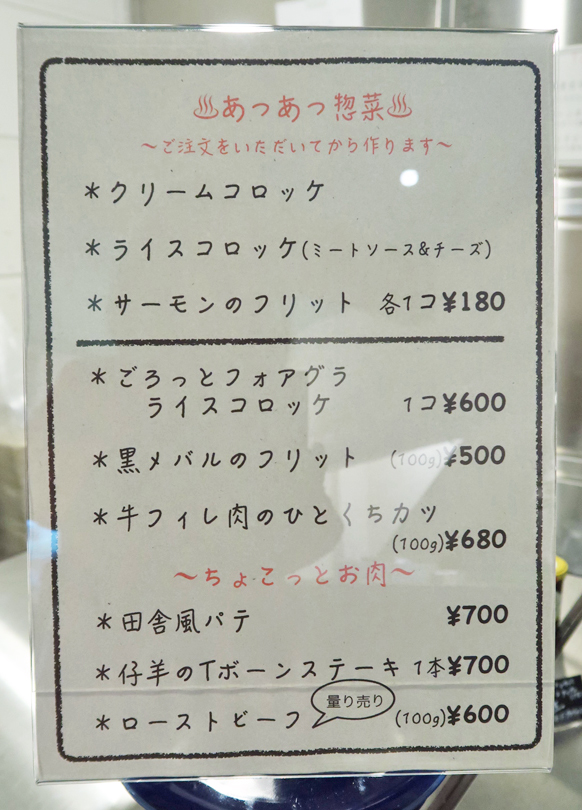 ♨あつあつ惣菜♨
～ご注文をいただいてから作ります～
＊クリームコロッケ
＊ライスコロッケ(ミートソース&チーズ)
＊サーモンのフリット 各1コ¥180
＊ごろっとフォアグラ
ライスコロッケ 1コ¥600
＊黒メバルのフリット (100g)¥500
＊牛フィレ肉のひとくちカツ
(100g)¥680
～ちょこっとお肉～
＊田舎風パテ ¥700
＊仔羊のTボーンステーキ 1本¥700
量り売り
＊ローストビーフ (100g)¥600